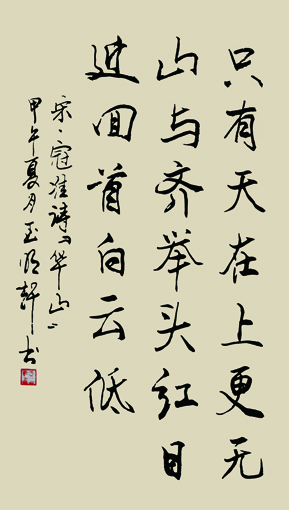 只有天在上更无
山与齐举头红日
近回首白云低
宋、寇准诗《华山》
甲午夏月玉轩书